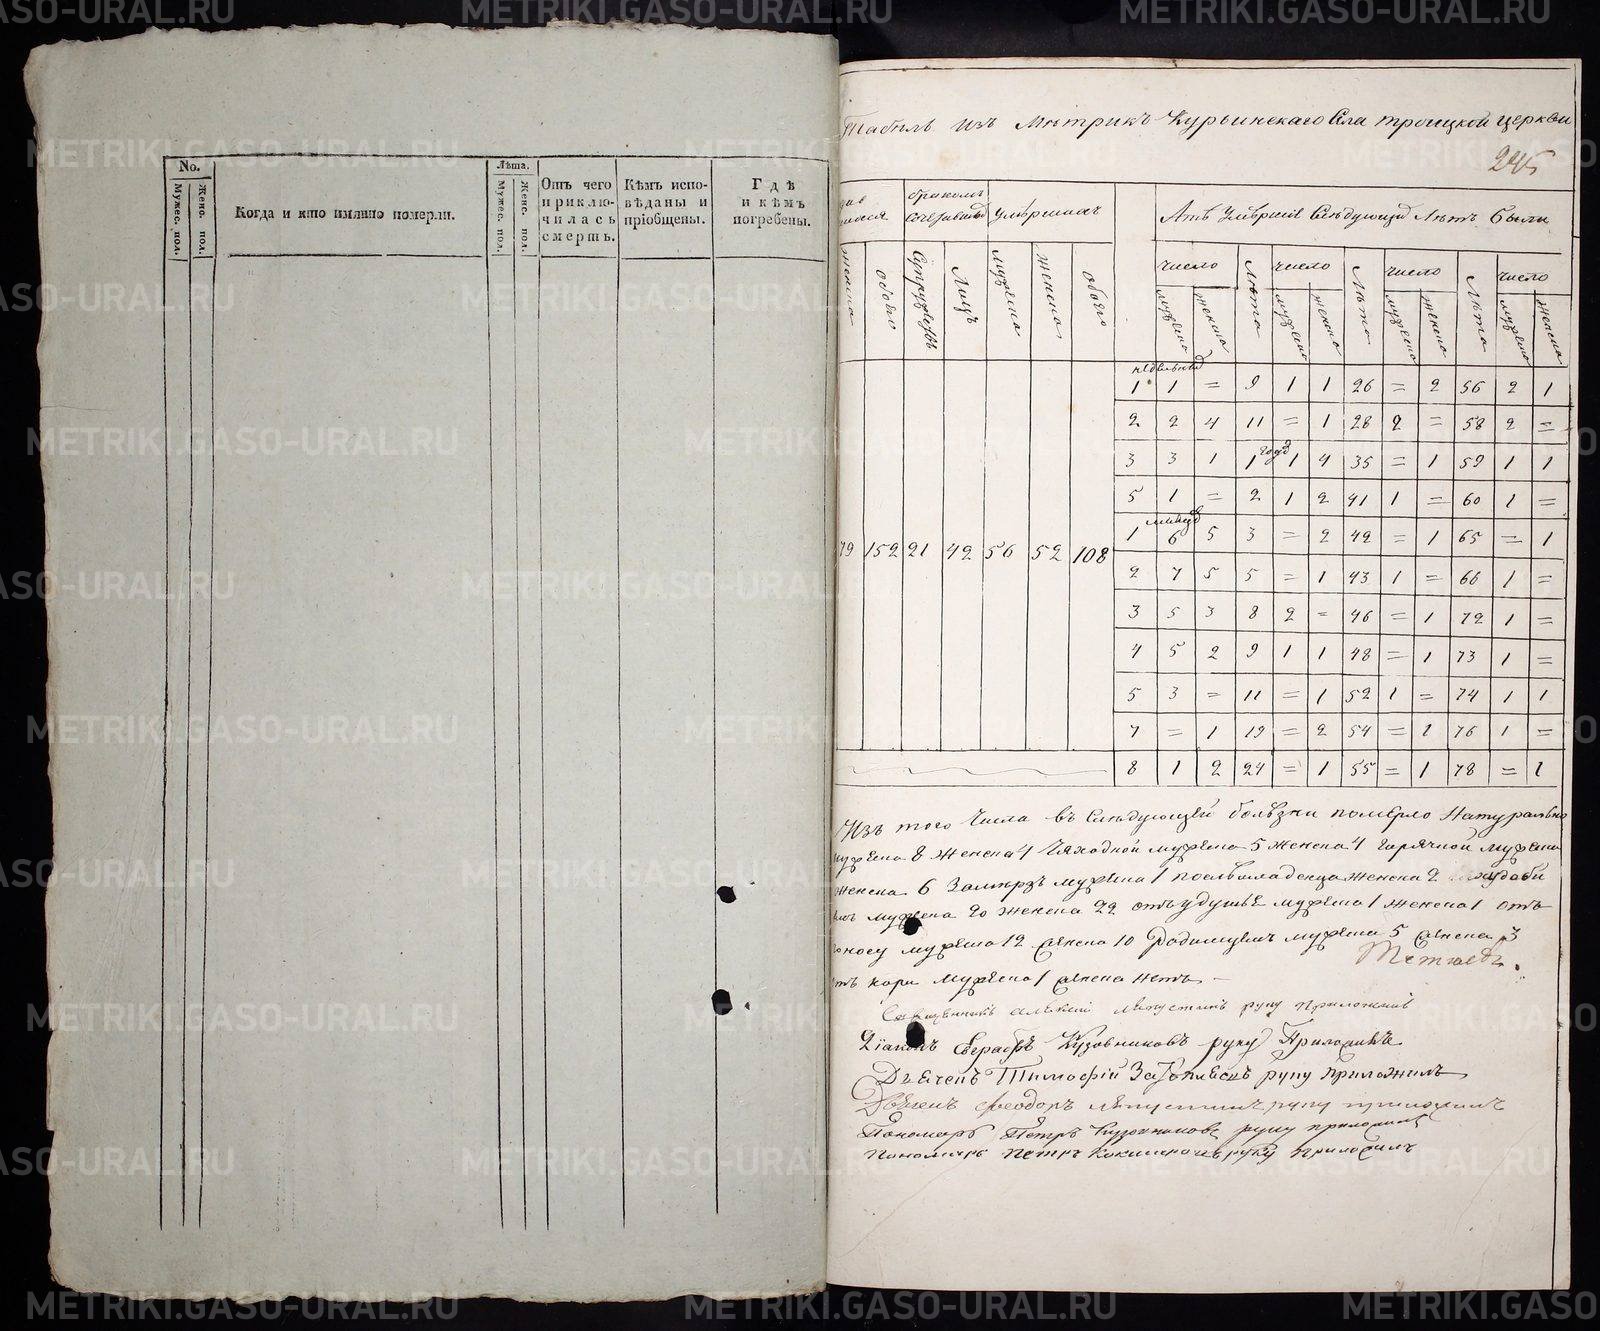 METRIKI.GASO-URAL.RU
No.
Мужес. пол.
Женс. пол.
Когда и кто имянно померли.
Лѣта.
Мужес. пол.
Женс. пол.
Отъ чего приклю-
чилась
смерть.
Кѣмъ испо-
вѣданы и
пріобщены.
Гдѣ
и кѣмъ
погребены.
Табель изъ Метрикъ Курьинскаго Села троицкой церкви
245
бракомъ
умершихъ
Лѣтъ были
женска
обоего
Супружевъ
Лицъ
мужска
женска
обоего
число
Лѣта
число
Лѣта
число
Лѣта
число
мужска
женска
мужска
женска
мужска
женска
мужска
женска
79 152 21 42 56 52 108
1 1 = 9 1 1 26 = 2 56 2 1
2 2 4 11 = 1 28 2 = 58 2 =
года
3 3 1 1 1 4 35 = 1 59 1 1
5 1 = 2 1 2 41 1 = 60 1 =
1 6 5 3 = 2 42 = 1 65 = 1
2 7 5 5 = 1 43 1 = 66 1 =
3 5 3 8 2 = 46 = 1 72 1 =
4 5 2 9 1 1 48 = 1 73 1 =
5 3 = 11 = 1 52 1 = 74 1 1
7 = 1 19 = 2 54 = 1 76 1 =
8 1 2 24 = 1 55 = 1 78 = 1
Изъ того Числа въ болѣзни померло Натурально
мужска 8 женска 4 мужска 5 женска 4 горячкой мужска
женска 6 мужска 1 женска 2
мужска 20 женска 22 отъ удушья мужска 1 женска 1 отъ
поносу мужска 12 женска 10 Родимцемъ мужска 5 женска 3
отъ кори мужска 1 женска нетъ
Священникъ руку Приложилъ
Діаконъ Евграфъ Кузовниковъ руку Приложилъ
Дьячекъ Тимофій руку приложилъ
Дьячекъ Феодоръ руку приложилъ
Пономарь Петръ Кузовниковъ руку приложилъ
Пономарь Петръ руку приложилъ